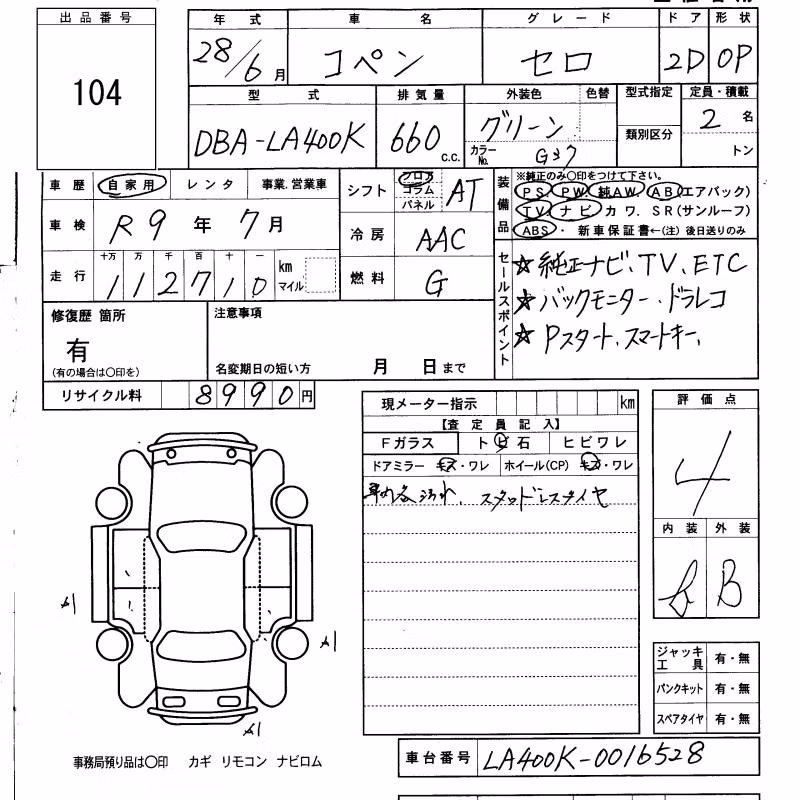 出品番号
104
年式 車名 グレード ドア 形状
28/6月 コペン セロ 2D OP
型式 排気量 外装色 色替 型式指定 定員・積載
DBA-LA400K 660 C.C. グリーン カラーNo. G57 類別区分 2名 トン
車歴 自家用 レンタ 事業.営業車 シフト フロア コラム パネル AT
車検 R9年7月 冷房 AAC
走行 十万 万 千 百 十 一
112710 km マイル 燃料 G
装備品 ※純正のみ〇印をつけて下さい。
PS PW 純AW. AB(エアバック)
TV ナビ カワ. SR(サンルーフ)
ABS・ 新車保証書←(注)後日送りのみ
セールスポイント
☆純正ナビ、TV、ETC
☆バックモニター、ドラレコ
☆Pスタート、スマートキー、
修復歴 箇所 注意事項
有
(有の場合は〇印を) 名変期日の短い方 月 日まで
リサイクル料 8990円
現メーター指示 km
【査定員記入】
Fガラス トビ石 ヒビワレ
ドアミラー キズ・ワレ ホイール(CP) キズ・ワレ
車内各汚れ、スタッドレスタイヤ
評価点
4
内装 外装
B
A1
A1
A1
ジャッキ工具 有・無
パンクキット 有・無
スペアタイヤ 有・無
事務局預り品は〇印 カギ リモコン ナビロム
車台番号 LA400K-0016528